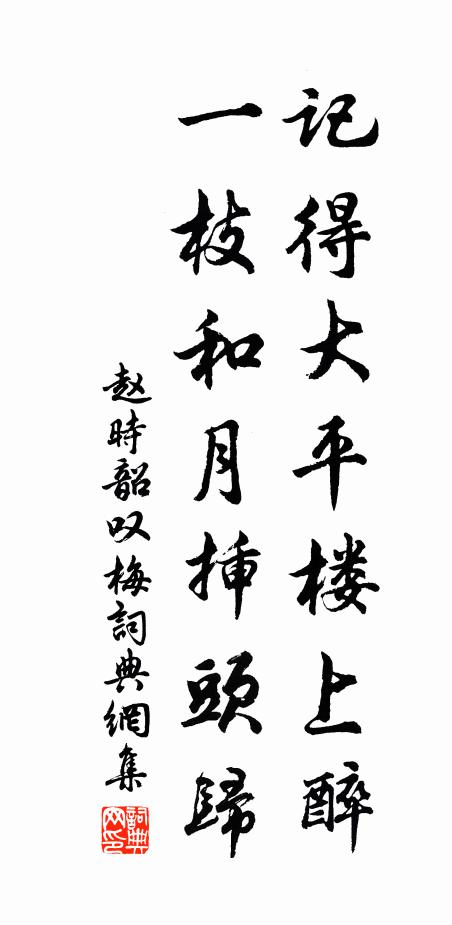 记得大平楼上醉
一枝和月挿頭歸
赵時韶叹梅詞典網集
詞典网印